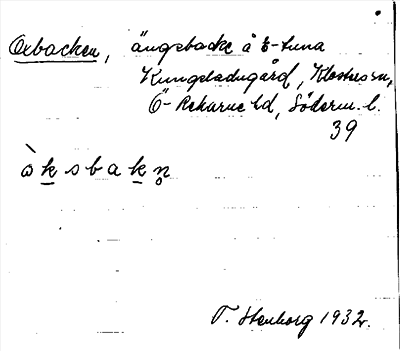 Oxbacken, ängsbacke å E-tuna
Kungsladugård, Klosters sn,
Ö-Rekarne hd, Söderm. l.
39
òksbakn̥
T. Stenborg 1932.